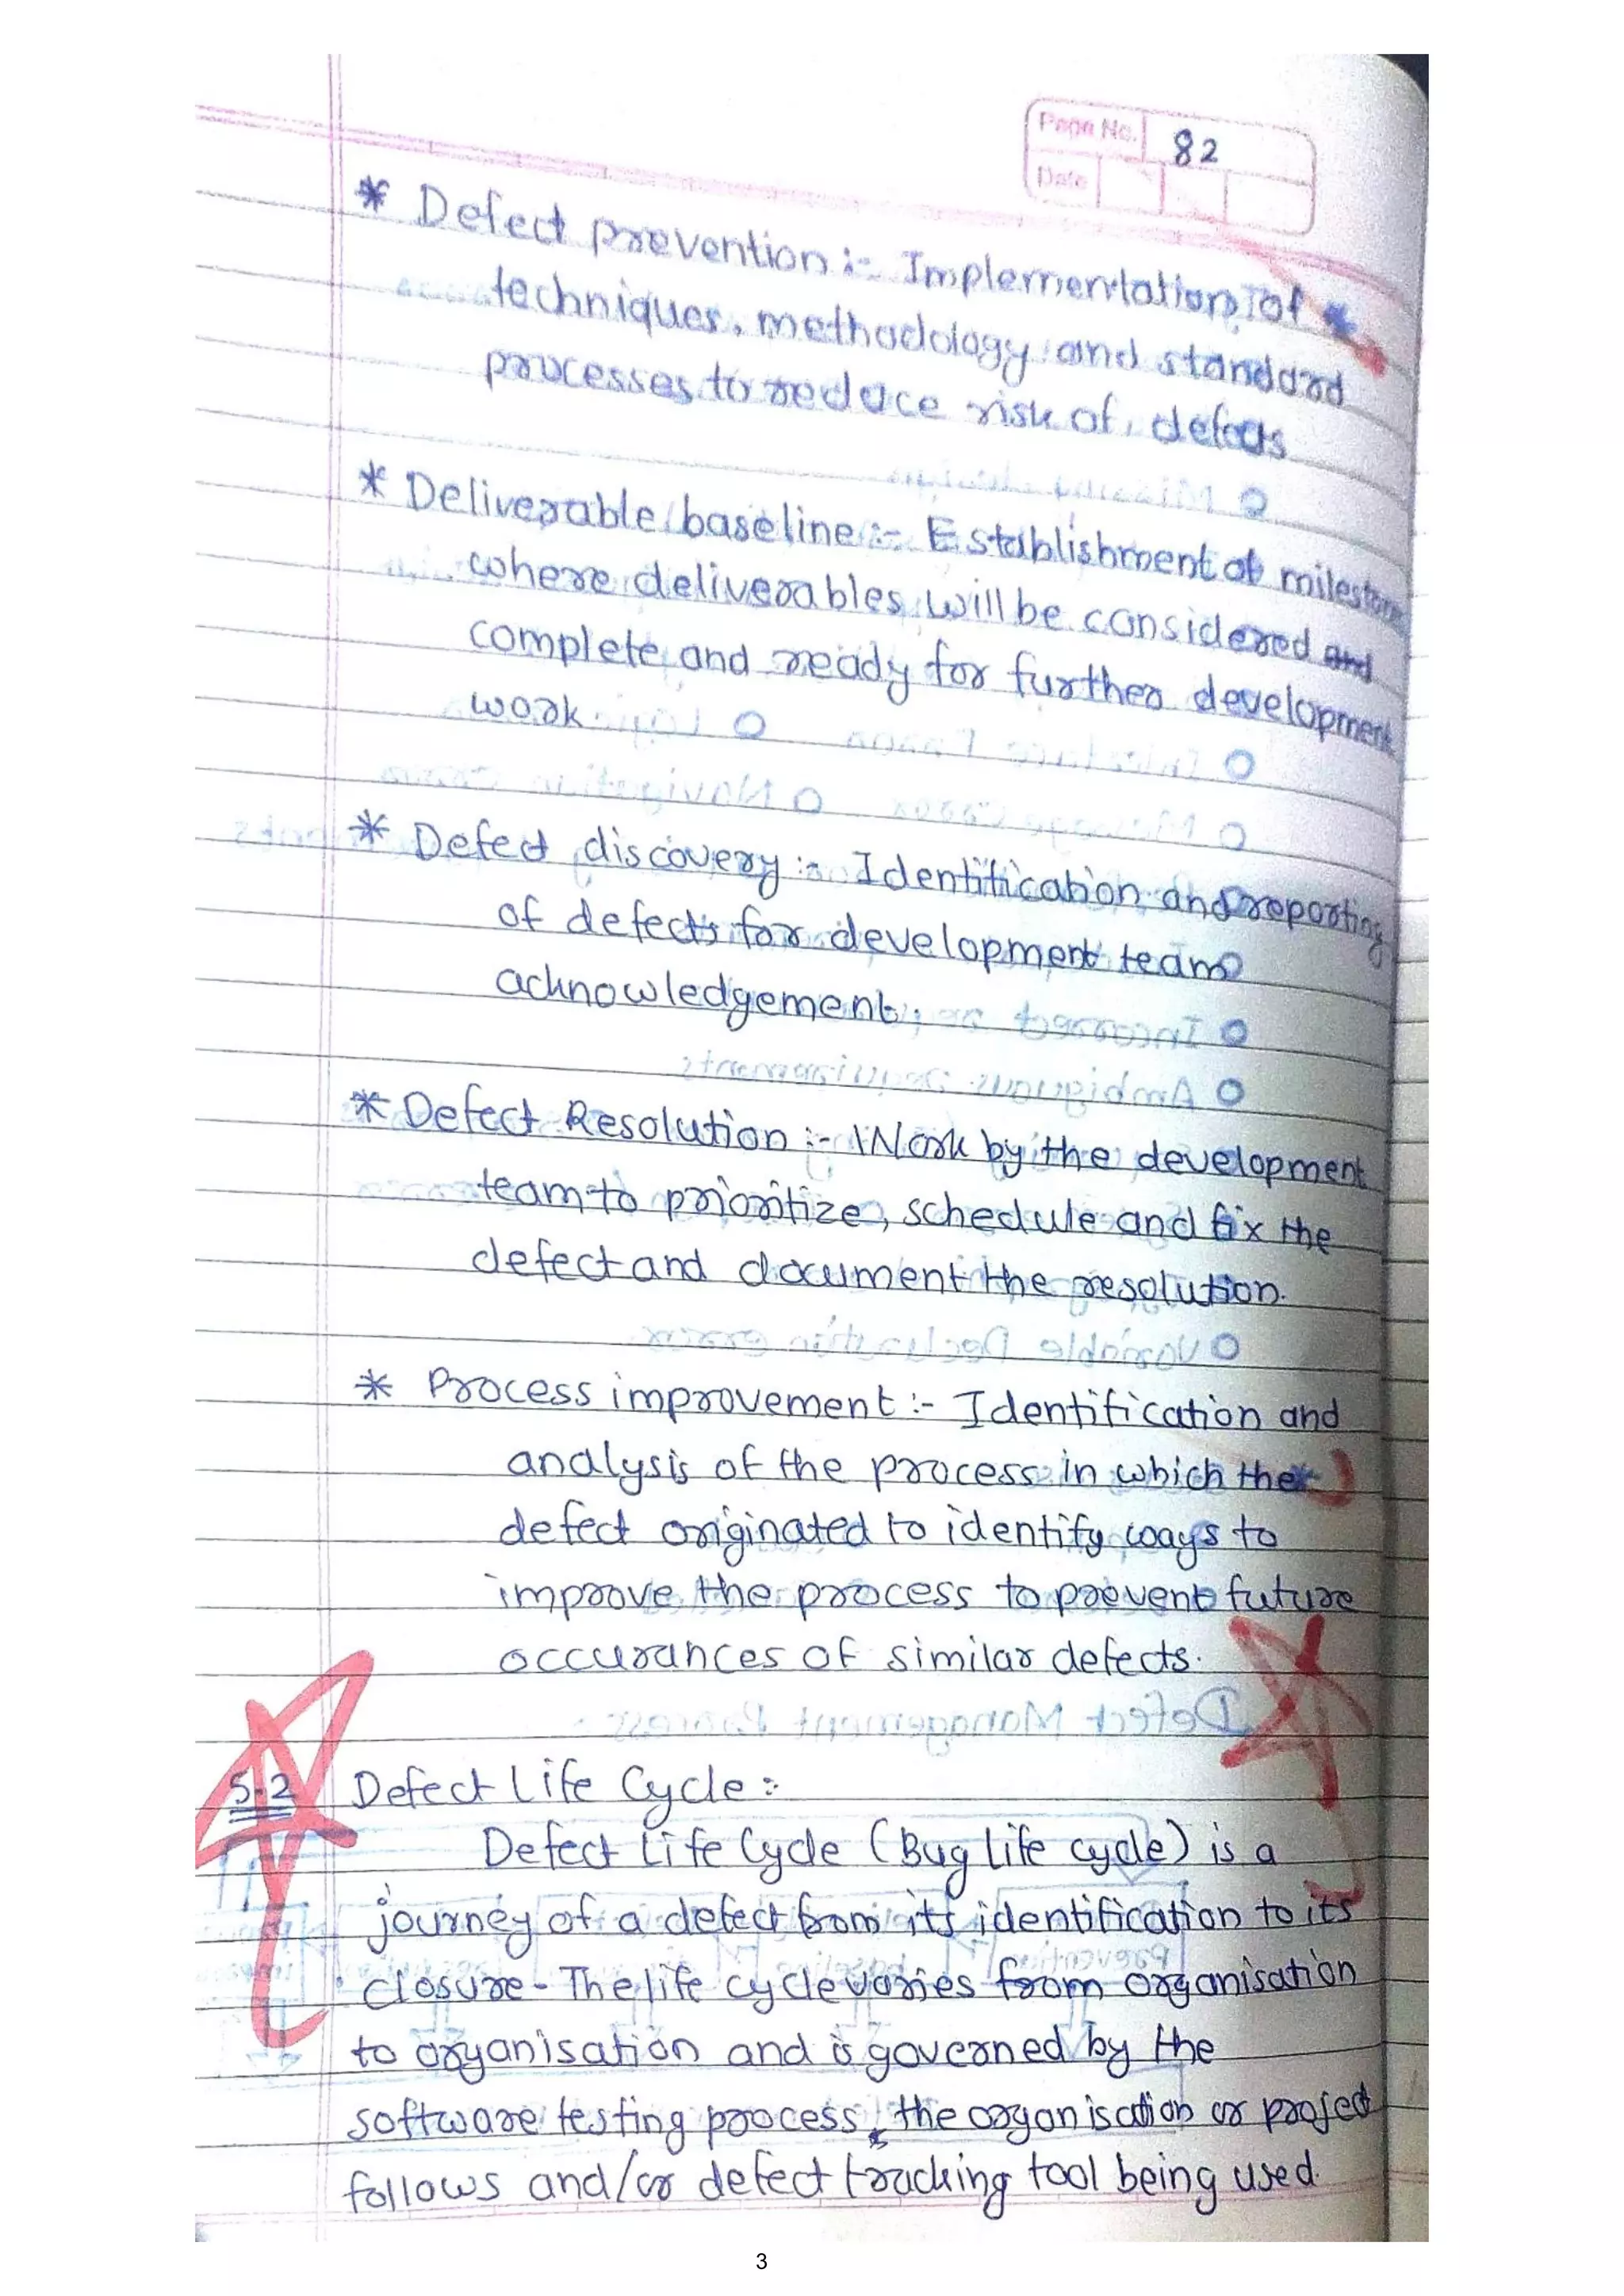 Page No. 82
Date
* Defect prevention :- Implementation of
techniques, methodology and standard
processes to reduce risk of defects
* Deliverable baseline :- Establishment of milestone
where deliverables will be considered
complete and ready for further development
work.
* Defect discovery :- Identification and reporting
of defects for development team
acknowledgement.
* Defect Resolution :- Work by the development
team to prioritize, schedule and fix the
defect and document the resolution.
* Process improvement :- Identification and
analysis of the process in which the
defect originated to identify ways to
improve the process to prevent future
occurances of similar defects.
5.2 Defect Life Cycle :-
Defect Life Cycle (Bug Life cycle) is a
journey of a defect from its identification to its
closure - The life cycle varies from organisation
to organisation and is governed by the
software testing process, the organisation or project
follows and/or defect tracking tool being used.
3